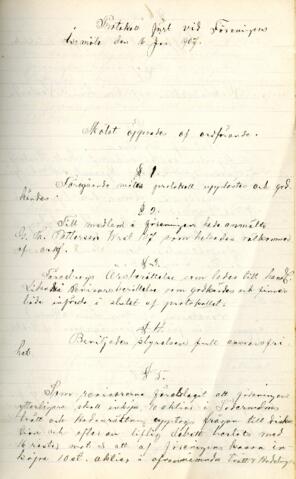 Protokoll fört vid Föreningens
årsmöte den 16 Jan. 1907.
Mötet öppnades af ordförande.
§ 1.
Föregående mötes protokoll upplästes och god
kändes.
§ 2.
Till medlem i föreningen hade anmälts
G. A. Pettersson som helsades välkommen
af ordf.
§ 3.
Föredrogs Årsberättelse som lades till
Likaså Revisionsberättelse som godkändes och finnes
båda införda i slutet af protokollet.
§ 4.
Beviljades styrelsen full ansvarsfri
het
§ 5.
Som revisorerna föreslagit att föreningen
ytterligare skall inköpa 10 aktier i Södermanlands
upptogs frågan till diskus
sion och efter en liflig debatt beslöts med
16 röster mot 8 att af föreningens kassa in
köpa 10 st. aktier i ofvannämnda